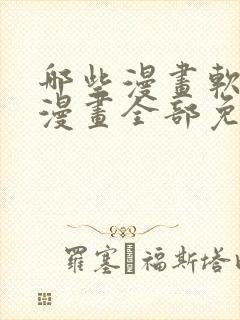 哪些漫畫軟
漫畫全部免
羅塞 福斯塔